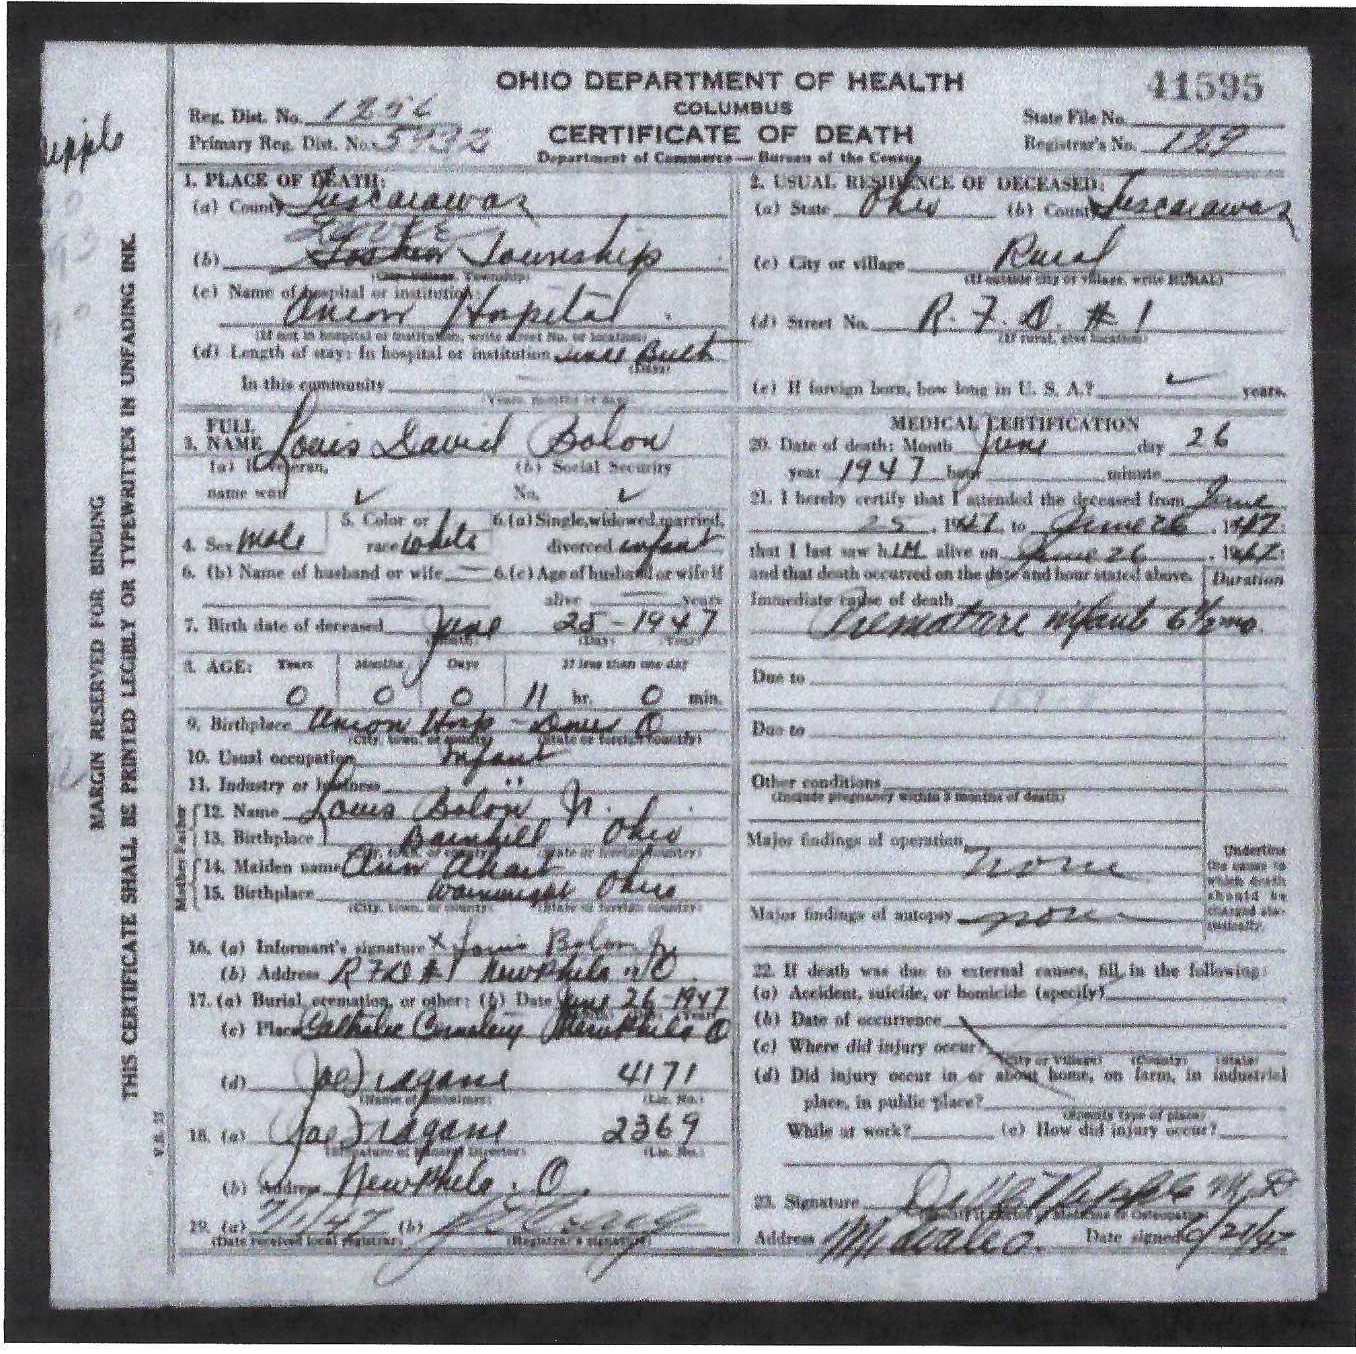 OHIO DEPARTMENT OF HEALTH
41595
COLUMBUS
Reg. Dist. No. 1256
State File No.
CERTIFICATE OF DEATH
Primary Reg. Dist. No. 5932
Registrar's No. 129
Department of Commerce — Bureau of the Census
1. PLACE OF DEATH:
(a) County Tuscarawas
(b) Goshen Township
(c) Name of hospital or institution:
Union Hospital
(If not in hospital or institution, write street No. or location)
(d) Length of stay: In hospital or institution since Birth
(Days)
In this community
Years, months or days
2. USUAL RESIDENCE OF DECEASED:
(a) State Ohio (b) County Tuscarawas
(c) City or village Rural
(If outside city or village, write RURAL)
(d) Street No. R. F. D. # 1
(If rural, give location)
(e) If foreign born, how long in U. S. A.? years.
3. FULL NAME Louis David Bolon
(a) If veteran, name war
(b) Social Security No.
4. Sex male
5. Color or race white
6. (a) Single, widowed, married, divorced infant
6. (b) Name of husband or wife
6. (c) Age of husband or wife if alive years
7. Birth date of deceased June 25 - 1947
(Day) (Year)
8. AGE: Years Months Days If less than one day
0 0 0 11 hr. 0 min.
9. Birthplace Union Hosp - Dover O
(City, town, or county) (State or foreign country)
10. Usual occupation Infant
11. Industry or business "
Father
12. Name Louis Bolon Jr.
13. Birthplace Barnhill Ohio
Mother
14. Maiden name Ann
15. Birthplace Wainwright Ohio
(City, town, or county) (State or foreign country)
16. (a) Informant's signature x Louis Bolon Jr
(b) Address RFD #1 New Phila O
17. (a) Burial, cremation, or other: (b) Date June 26 - 1947
(c) Place Catholic Cemetery New Phila O
(d) Joe Fragasse 4171
(Name of Embalmer) (Lic. No.)
18. (a) Joe Fragasse 2369
(Signature of Funeral Director) (Lic. No.)
(b) Address New Phila. O.
19. (a) 7/1/47 (b)
(Date received local registrar) (Registrar's signature)
MEDICAL CERTIFICATION
20. Date of death: Month June day 26
year 1947 hour minute
21. I hereby certify that I attended the deceased from June
25, 1947, to June 26, 1947;
that I last saw him alive on June 26, 1947;
and that death occurred on the date and hour stated above.
Duration
Immediate cause of death
Premature infant 6 1/2 mo.
Due to
Due to
Other conditions
(Include pregnancy within 3 months of death)
Major findings of operation
none
Major findings of autopsy none
Underline the cause to which death should be charged statistically.
22. If death was due to external causes, fill in the following:
(a) Accident, suicide, or homicide (specify)
(b) Date of occurrence
(c) Where did injury occur?
(City or Village) (County) (State)
(d) Did injury occur in or about home, on farm, in industrial
place, in public place?
(Specify type of place)
While at work? (e) How did injury occur?
23. Signature M.D.
Address Midvale O. Date signed
MARGIN RESERVED FOR BINDING
THIS CERTIFICATE SHALL BE PRINTED LEGIBLY OR TYPEWRITTEN IN UNFADING INK.